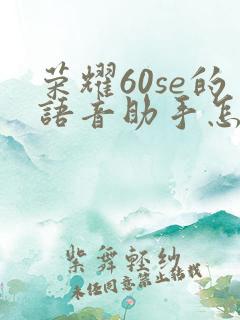 荣耀60se的
語音助手怎
紫舞輕紗
未经同意禁止转载